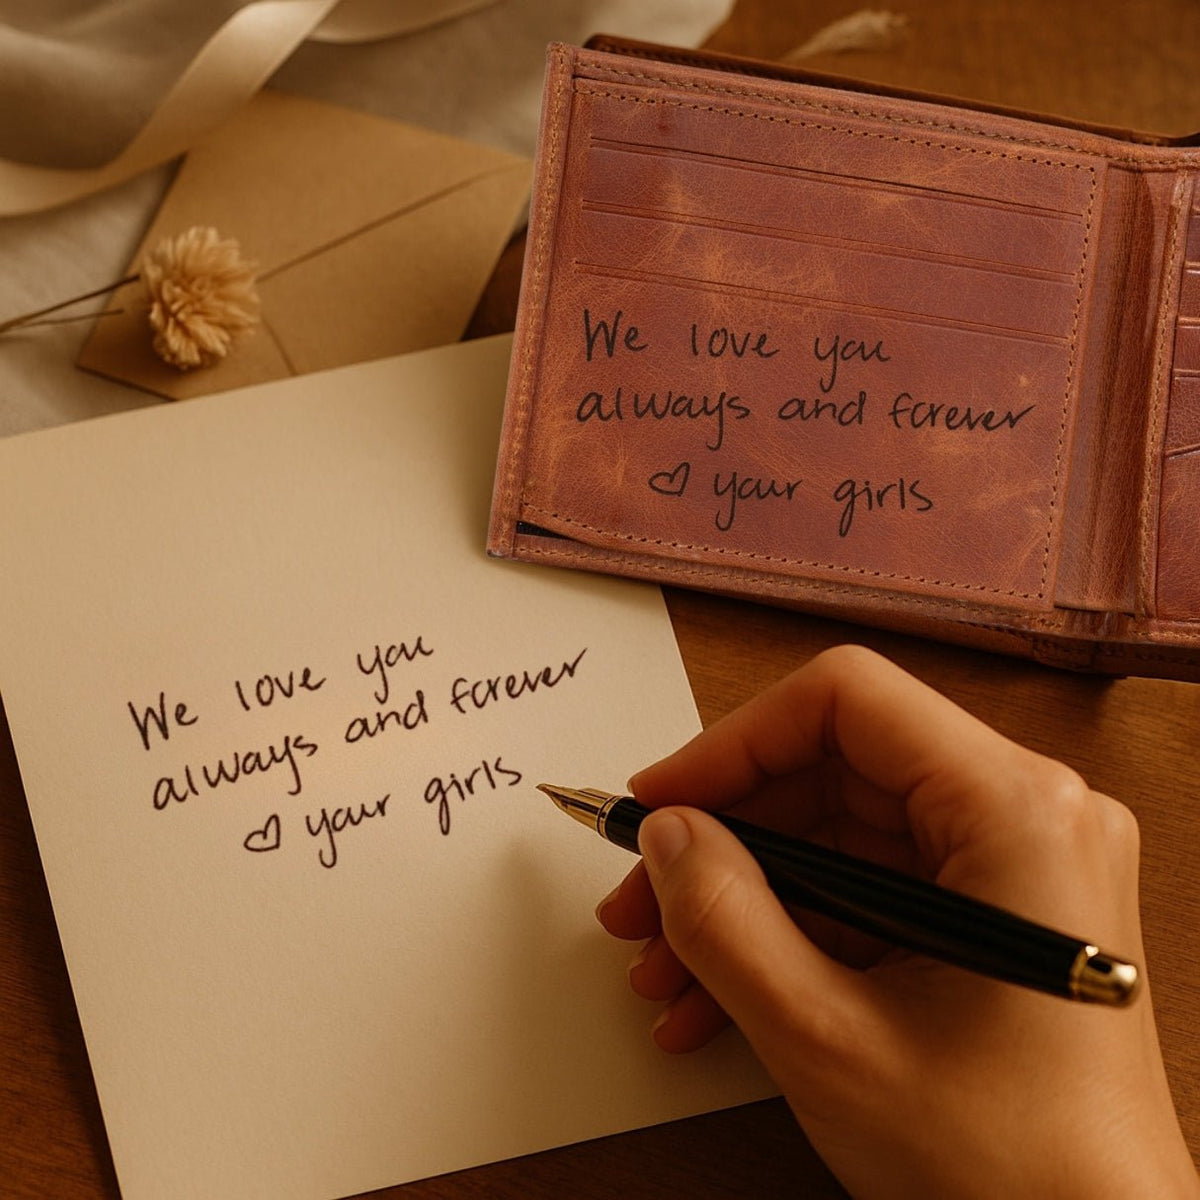 We love you
always and forever
♡ your girls
We love you
always and forever
♡ your girls